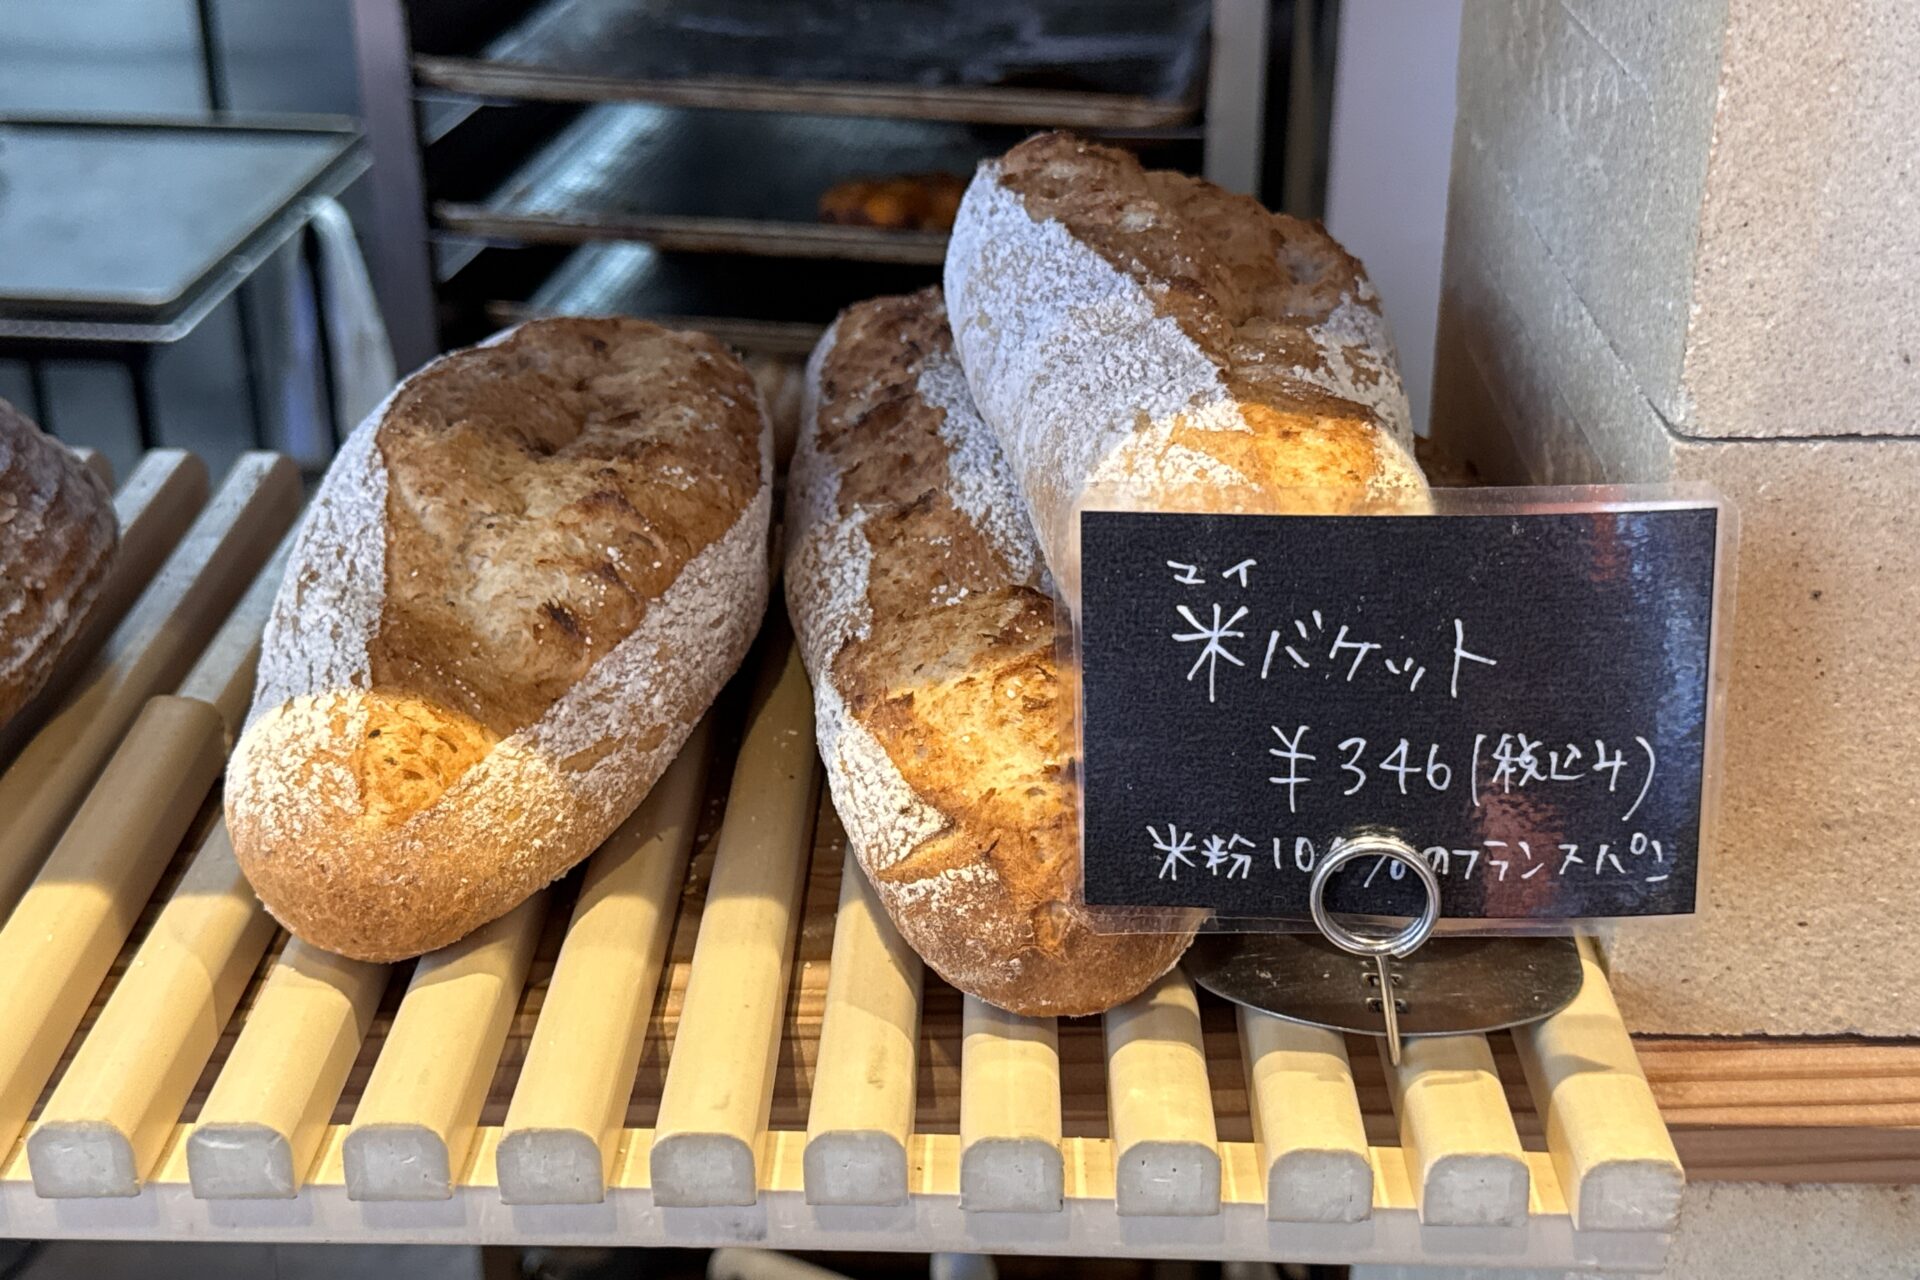 マイ
米バケット
¥346(税込み)
米粉100%のフランスパン